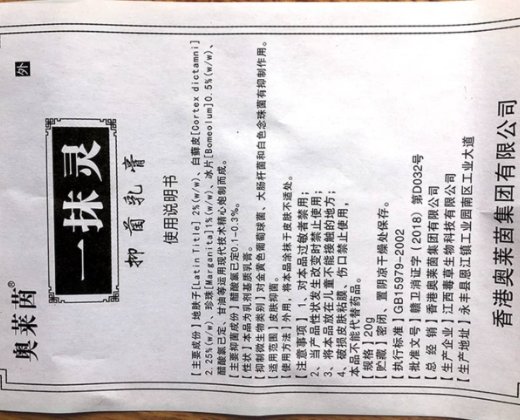 奥莱茵®
外
一抹灵
抑菌乳膏
使用说明书
【主要成份】地肤子[Latin Title]2%(w/w)、白藓皮[Cortex dictamni]
2.25%(w/w)、珍珠[Margarita]1%(w/w)、冰片[Borneolum]0.5%(w/w)、
醋酸氯已定、甘油等运用现代技术精心炮制而成。
【主要抑菌成份】醋酸氯已定0.1-0.3%。
【性状】本品为乳剂基质乳膏。
【抑制微生物类别】对金黄色葡萄球菌、大肠杆菌和白色念珠菌有抑制作用。
【适用范围】皮肤抑菌。
【使用方法】外用，将本品涂抹于皮肤不适处。
【注意事项】1、对本品过敏者禁用；
2、当产品性状发生改变时禁止使用；
3、将本品放在儿童不能接触的地方；
4、破损皮肤粘膜、伤口禁止使用，
本品不能代替药品。
【规格】20g
【贮藏】密闭、置阴凉干燥处保存。
【执行标准】GB15979-2002
【批准文号】赣卫消证字（2018）第D032号
【总 经 销】香港奥莱茵集团有限公司
【生产企业】江西毒草生物科技有限公司
【生产地址】永丰县恩江镇工业园南区工业大道
香港奥莱茵集团有限公司